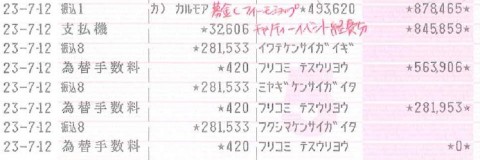 23-7-12 振込1 カ) カルモア 募金しフィーモシャップ *493,620 *878,465*
23-7-12 支払機 *32,606 チャリティーイベント経費分 *845,859*
23-7-12 振込8 *281,533 イワテケンサイガイギ
23-7-12 為替手数料 *420 フリコミ テスウリヨウ *563,906*
23-7-12 振込8 *281,533 ミヤギケンサイガイタ
23-7-12 為替手数料 *420 フリコミ テスウリヨウ *281,953*
23-7-12 振込8 *281,533 フクシマケンサイガイタ
23-7-12 為替手数料 *420 フリコミ テスウリヨウ *0*